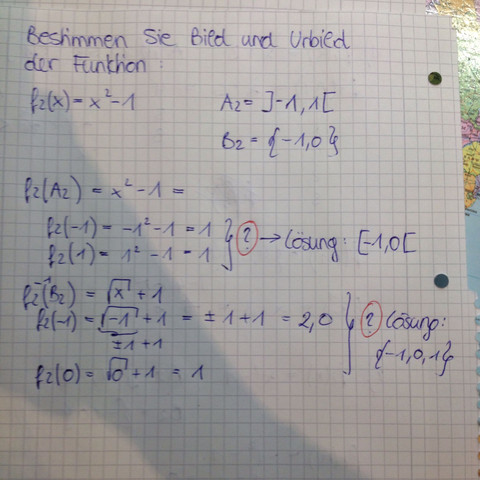 Bestimmen Sie Bild und Urbild
der Funktion:
f₂(x) = x² - 1
A₂ = ]-1, 1[
B₂ = {-1, 0}
f₂(A₂) = x² - 1 =
f₂(-1) = -1² - 1 = 1
f₂(1) = 1² - 1 = 1
? → Lösung: [-1, 0[
f₂⁻¹(B₂) = √x + 1
f₂(-1) = √-1 + 1 = ±1 + 1 = 2, 0
±1 + 1
? Lösung:
{-1, 0, 1}
f₂(0) = √0 + 1 = 1